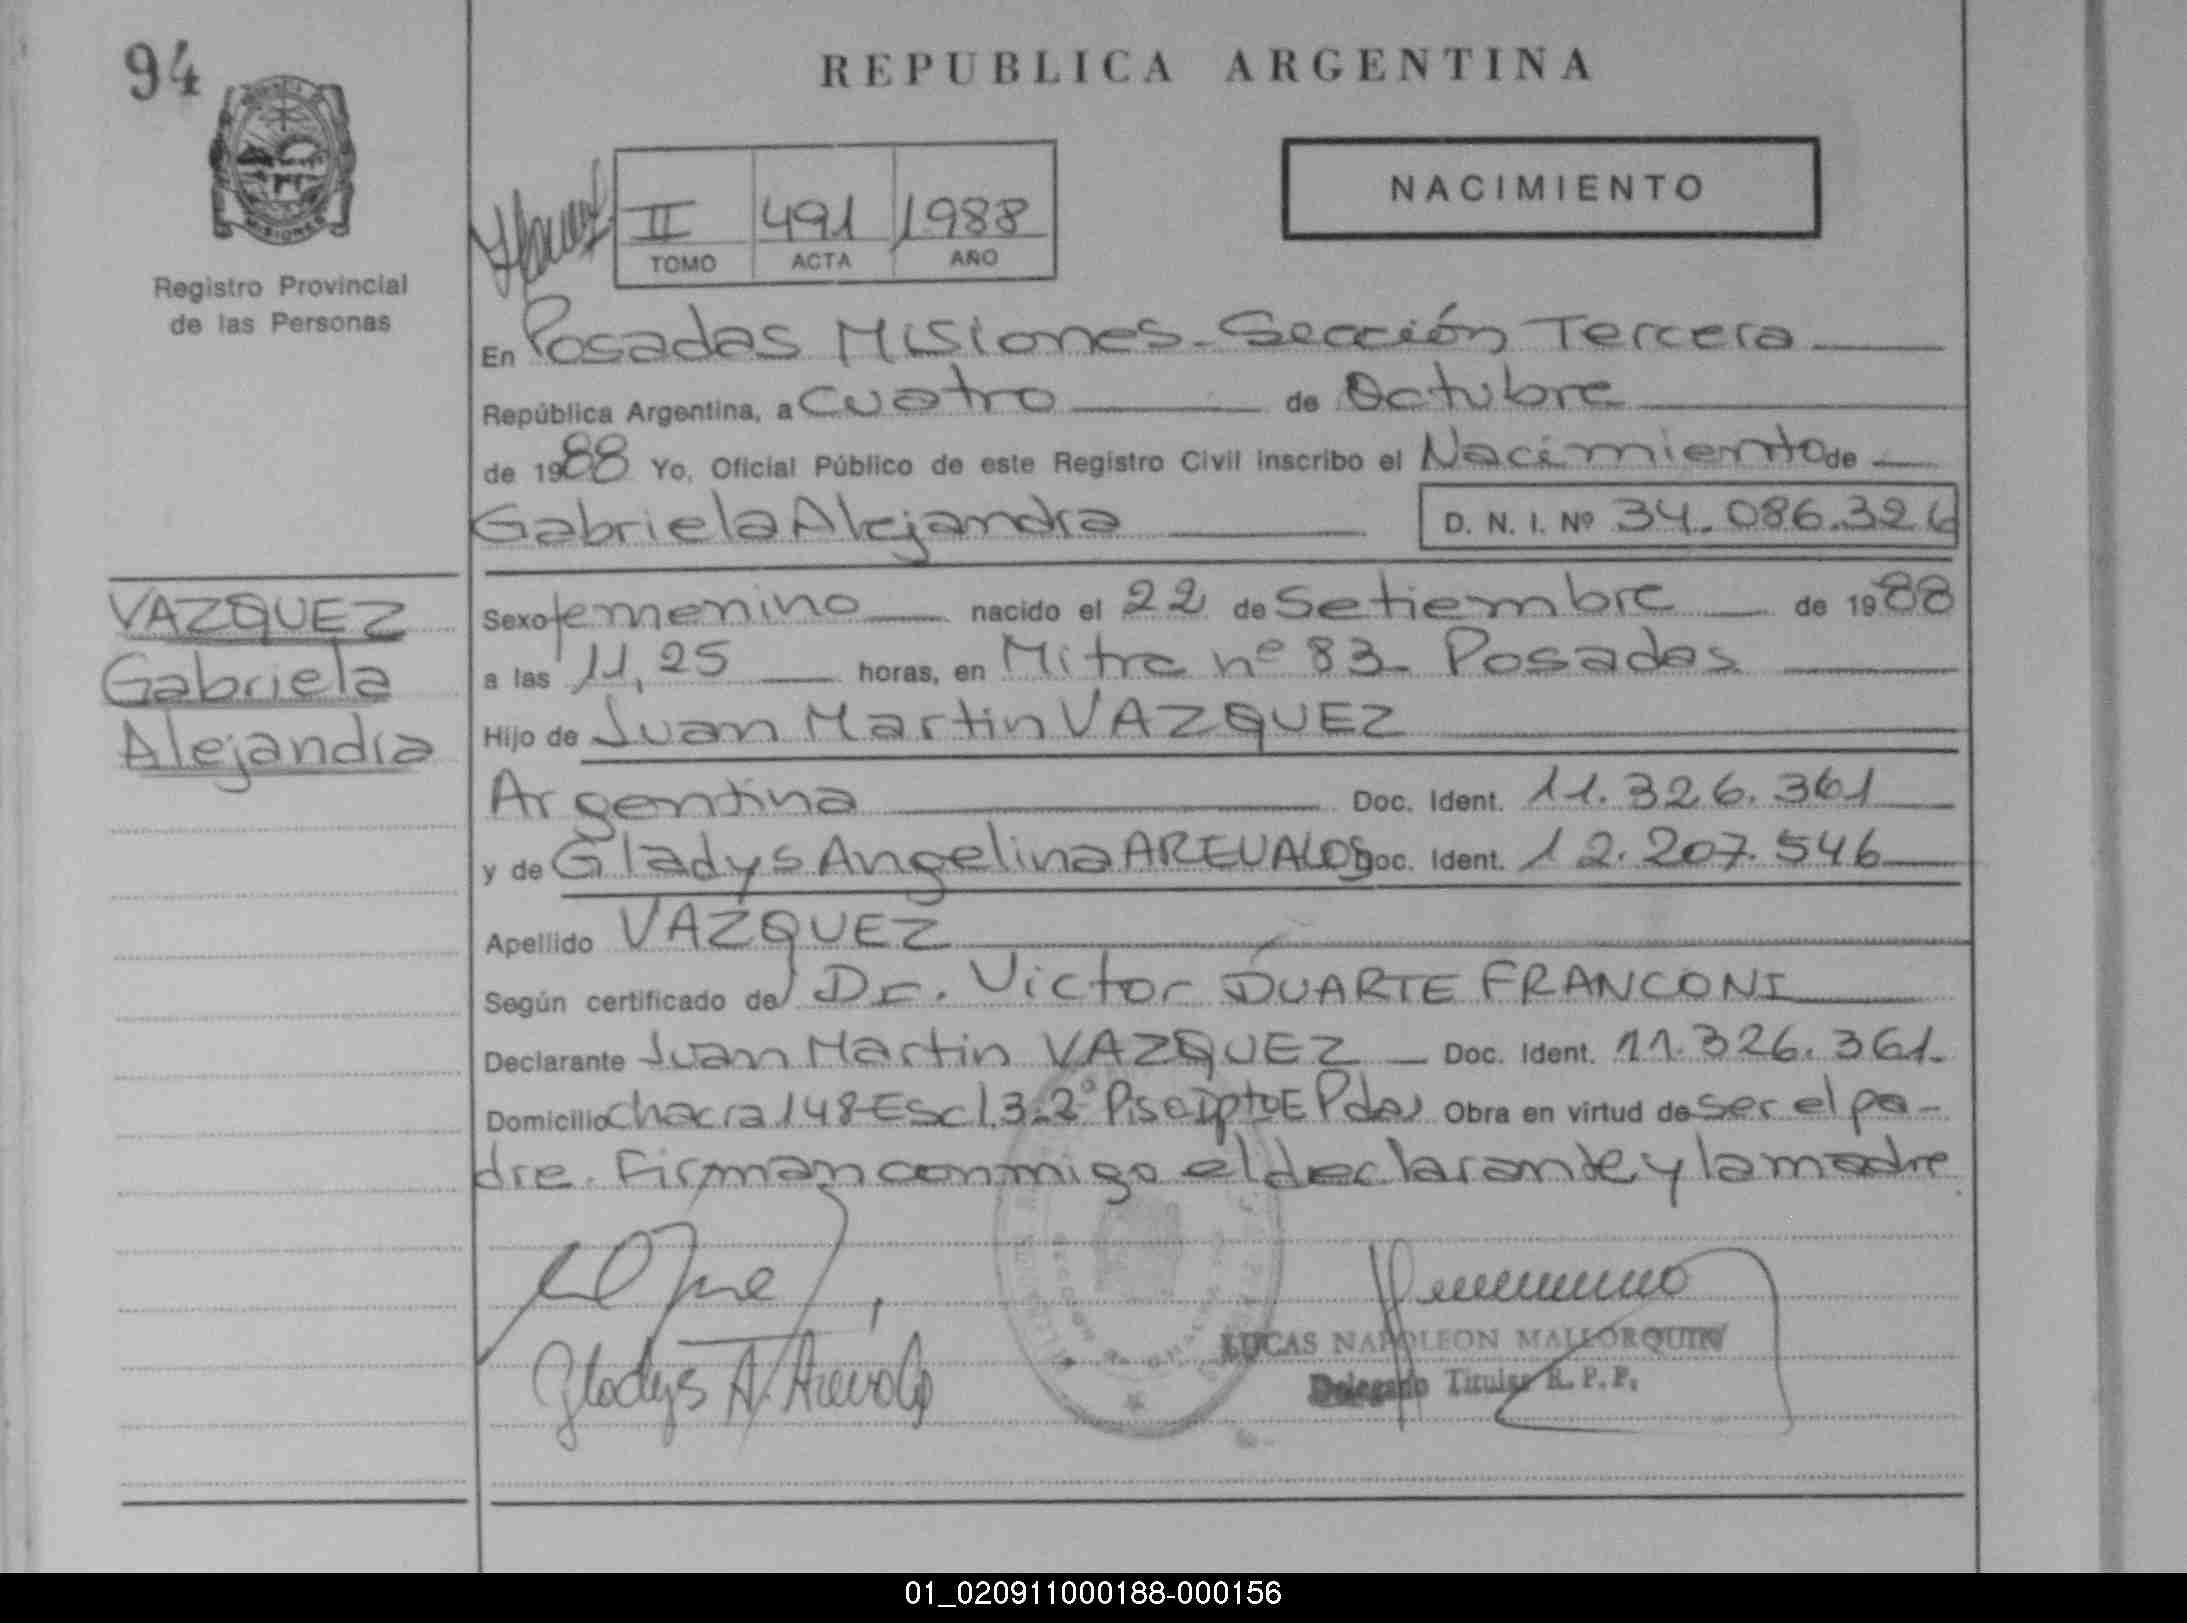 94
REPUBLICA ARGENTINA
NACIMIENTO
II 491 1988
TOMO ACTA AÑO
MISIONES
Registro Provincial
de las Personas
En Posadas Misiones - Sección Tercera
República Argentina, a cuatro de Octubre
de 1988 Yo, Oficial Público de este Registro Civil inscribo el Nacimiento de
Gabriela Alejandra D. N. I. Nº 34.086.326
VAZQUEZ
Gabriela
Alejandra
Sexo femenino nacido el 22 de Setiembre de 1988
a las 11,25 horas, en Mitre nº 83 - Posadas
Hijo de Juan Martin VAZQUEZ
Argentina Doc. Ident. 11.326.361
y de Gladys Angelina AREVALOS Doc. Ident. 12.207.546
Apellido VAZQUEZ
Según certificado de Dr. Victor DUARTE FRANCONI
Declarante Juan Martin VAZQUEZ - Doc. Ident. 11.326.361.
Domicilio chacra 148-Escl.3-2º Piso Dpto E Pdas Obra en virtud de ser el pa-
dre. Firman conmigo el declarante y la madre
Gladys A. Arevalos
LUCAS NAPOLEON MALLORQUIN
Delegado Titular R. P. P.
01_020911000188-000156